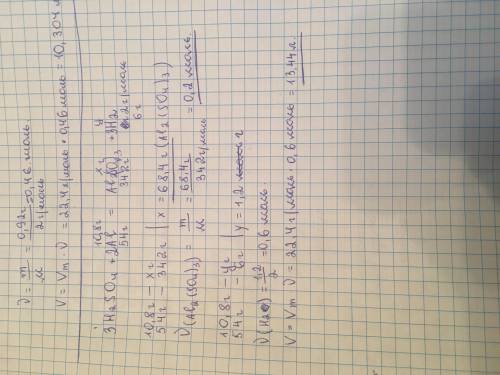 ν = m/M = 0,92г/2г/моль = 0,46 моль.
V = Vm · ν = 22,4л/моль · 0,46 моль = 10,304 л
10,8г xг y
3H2SO4 + 2Al = Al2(SO4)3 + 3H2
54г 342г 2г/моль
6г
10,8г – xг
54г – 342г | x = 68,4г (Al2(SO4)3)
ν(Al2(SO4)3) = m/M = 68,4г/342г/моль = 0,2 моль
10,8г – yг
54г – 6г | y = 1,2 г
ν(H2) = 1,2/2 = 0,6 моль
V = Vm ν = 22,4 г/моль · 0,6 моль = 13,44 л